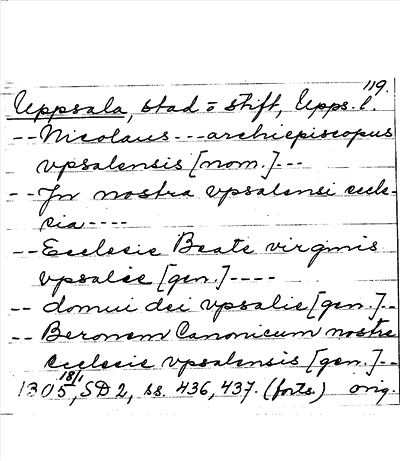 119.
Uppsala, stad o stift, Upps. l.
-- Nicolaus --- archiepiscopus
vpsalensis [nom.] ---
-- In nostra vpsalensi eccle-
cia ----
-- Ecclesie Beate virginis
vpsalie [gen.] ----
-- domui dei vpsalie [gen.] --
-- Beronem Canonicum nostre
ecclesie vpsalensis [gen.] --
1305 18/1, SD 2, ss. 436, 437. (forts.) orig.